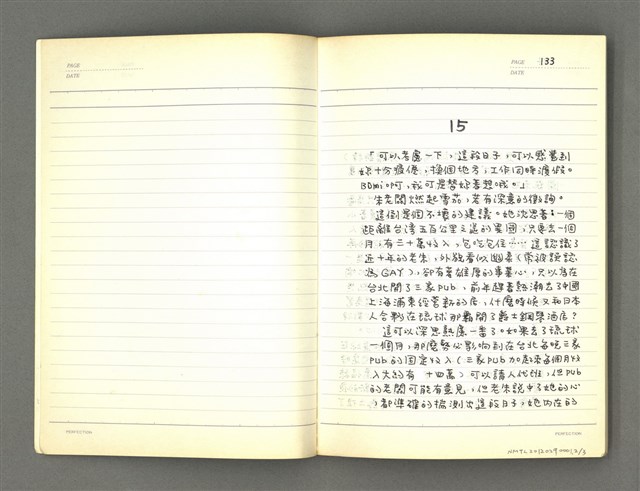 PAGE
DATE
PERFECTION
PAGE 133
DATE
15
「可以考慮一下，這段日子，可以感覺到
妳十分疲倦，換個地方，工作同時渡假。
BDmi啊，我可是替妳著想哦。」
朱老闆燃起雪茄，若有深意的徵詢。
這倒是個不壞的建議。她沈思著：一個
距離台灣五百公里之遠的異國，只要去一個
月，有二十萬收入，包吃包住⋯⋯這認識了
近十年的老朱，外貌看似幽柔（常被誤認
為GAY），卻有著雄厚的事業心，只以為在
台北開了三家pub，前年趕著熱潮去了中國
上海浦東經營新的店，什麼時候又和日本
人合夥在琉球那霸開了爵士鋼琴酒店？
這可以深思熟慮一番了。如果去了琉球
一個月，那麼勢必影響到在台北每晚三家
pub的固定收入（三家pub加起來每個月收
入大約有十四萬）可以請人代班，但pub
的老闆可能有意見，但老朱說中了她的心
，都準確的揣測出這段日子，她內在的
PERFECTION